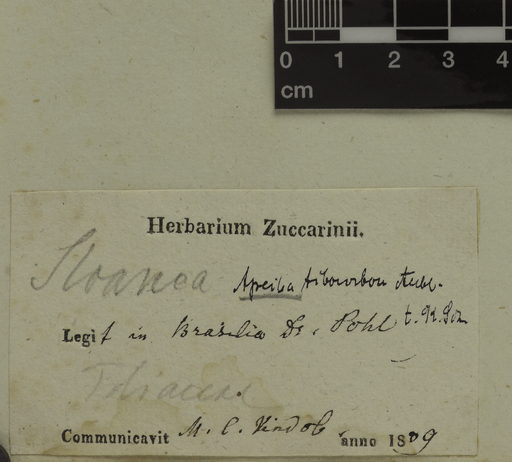 0 1 2 3 4
cm
Herbarium Zuccarinii.
Sloanea Apeiba tibourbou Aubl.
Legit in Brasilia Dr. Pohl t. K. Sch.
Tiliaceae.
Communicavit M. C. Vindob. anno 1839